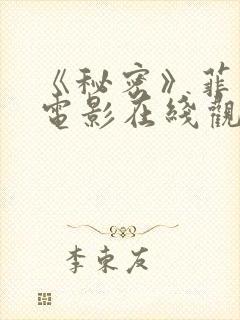 《秘密》.菲
電影在綫觀
李東友